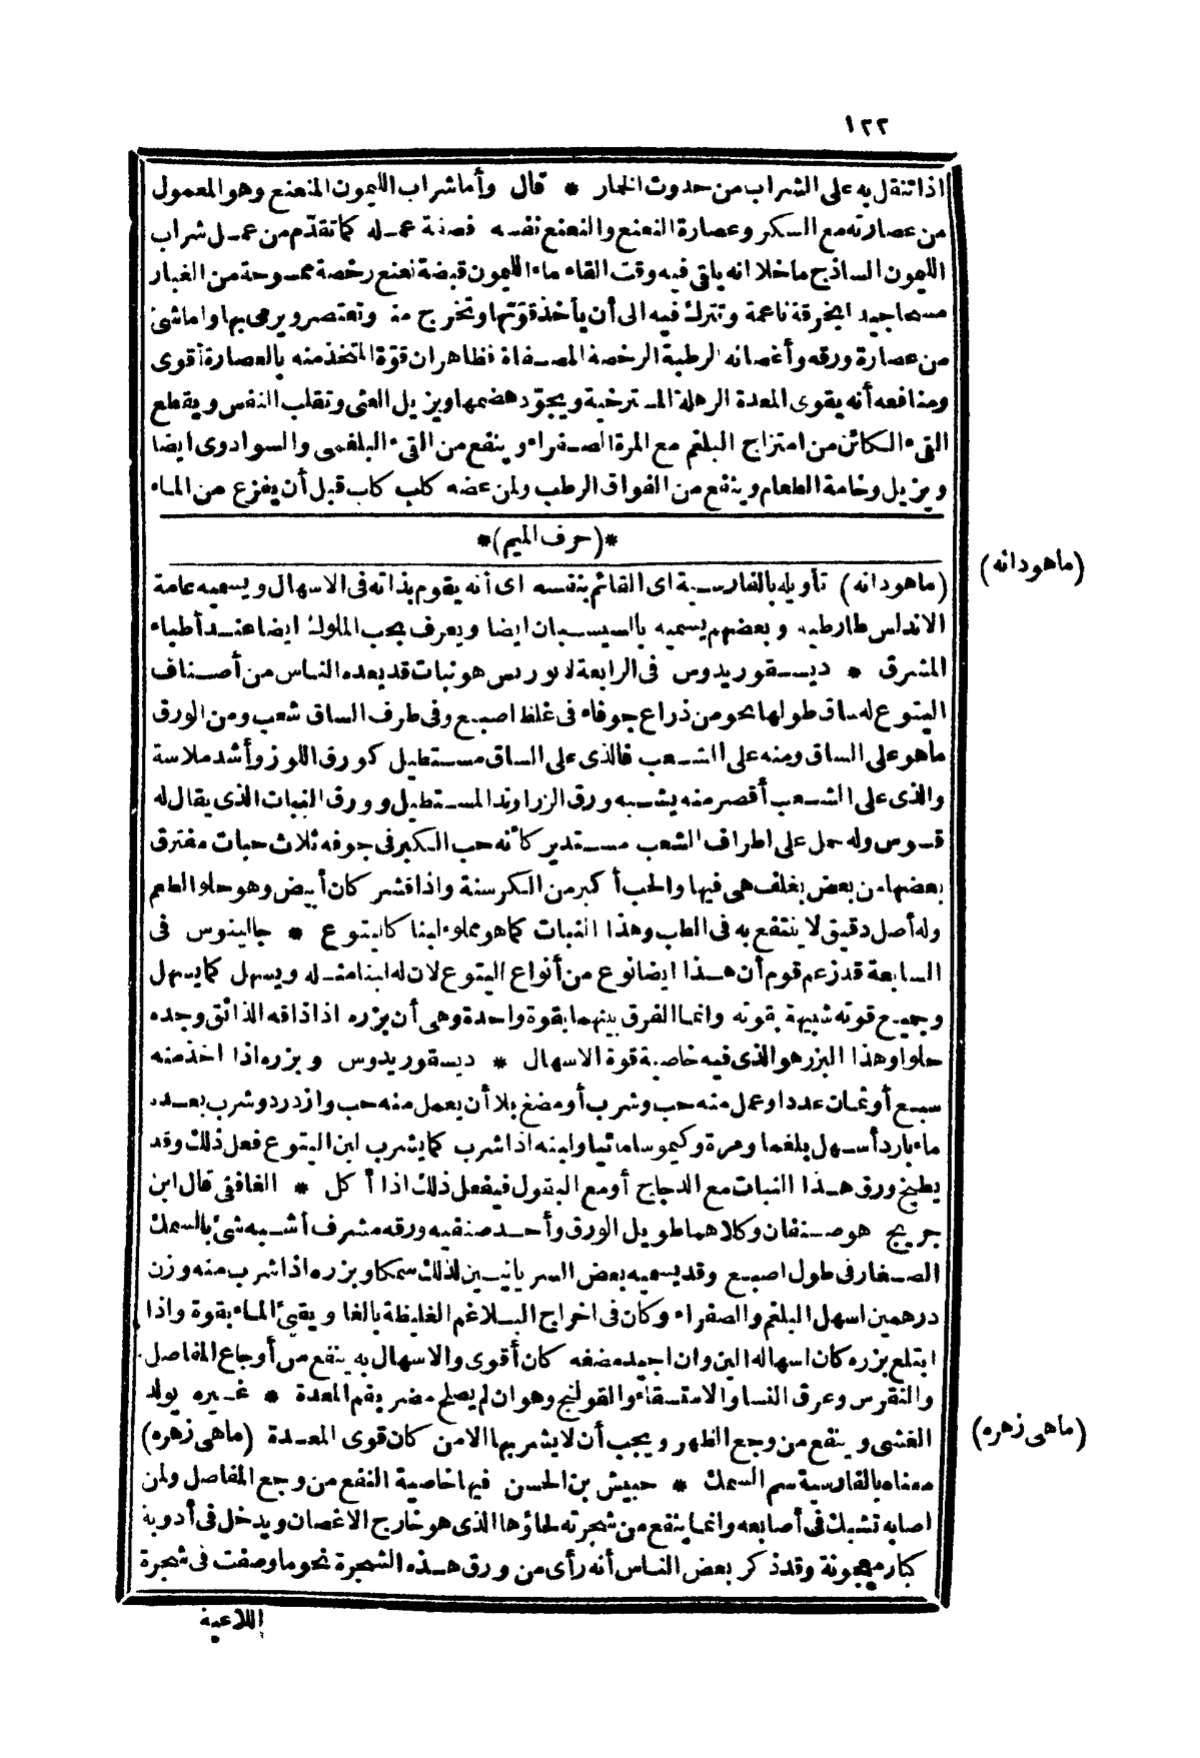 ١٢٢
اذا تنقل به على الشراب من حدوث الخمار * قال وأما شراب الليمون المنعنع وهو المعمول
من عصارته مع السكر وعصارة النعنع والنعنع نفسه فصنة عمله كما تقدّم من عمل شراب
الليمون الساذج ما خلا انه يلقى فيه وقت القاء ماء الليمون قبضة نعنع رخصة ممسوحة من الغبار
مسحا جيدا بخرقة ناعمة وتترك فيه الى أن يأخذ قوّتها وتخرج منه وتعتصر ويرمى بها واما شئ
من عصارة ورقه وأغصانه الرطبة الرخصة المصفاة فظاهر ان قوّة المتخذ منه بالعصارة أقوى
ومنافعه أنه يقوى المعدة الرهلة المسترخية ويجوّد هضمها ويزيل الغثى وتقلب النفس ويقطع
القىء الكائن من امتزاج البلغم مع المرة الصفراء وينفع من القىء البلغمى والسوادوى ايضا
ويزيل وخامة الطعام وينفع من الفواق الرطب ولمن عضه كلب كاب قبل أن يفزع من الماء
*(حرف الميم)*
(ماهودانه)
(ماهودانه) تأويله بالفارسية اى القائم بنفسه اى أنه يقوم بذاته فى الاسهال ويسميه عامة
الاندلس طارطيه وبعضهم يسميه بالسيسبان ايضا ويعرف بحب الملوك ايضا عند أطباء
المشرق * ديسقوريدوس فى الرابعة لانوريس هو نبات قد يعده الناس من أصناف
اليتوع له ساق طولها نحو من ذراع جوفاء فى غلظ اصبع وفى طرف الساق شعب ومن الورق
ما هو على الساق ومنه على الشعب فالذى على الساق مستطيل كورق اللوز وأشد ملاسة
والذى على الشعب أقصر منه يشبه ورق الزراوند المستطيل وورق النبات الذى يقال له
قسوس وله حمل على اطراف الشعب مستدير كأنه حب الكبر فى جوفه ثلاث حبات مفترق
بعضها من بعض بغلف هى فيها والحب أكبر من الكرسنة واذا قشر كان أبيض وهو حلو الطعم
وله أصل دقيق لا ينتفع به فى الطب وهذا النبات كما هو مملوء لبنا كاليتوع * جالينوس فى
السابعة قد زعم قوم أن هذا ايضا نوع من أنواع اليتوع لان له لبنا مثله ويسهل كما يسهل
وجميع قوته شبيهة بقوته وانما الفرق بينهما بقوة واحدة وهى أن بزره اذا ذاقه الذائق وجده
حلوا وهذا البزر هو الذى فيه خاصية قوة الاسهال * ديسقوريدوس وبزره اذا اخذ منه
سبع أو ثمان عددا وعمل منه حب وشرب أو مضغ بلا أن يعمل منه حب وازدرد وشرب بعده
ماء بارد أسهل بلغما ومرة وكيموسا مائيا ولبنه اذا شرب كما يشرب لبن اليتوع فعل ذلك وقد
يطبخ ورق هذا النبات مع الدجاج أو مع البقول فيفعل ذلك اذا أكل * الغافقى قال ابن
جريج هو صنفان وكلاهما طويل الورق وأحد صنفيه ورقه مشرف أشبه شئ بالسمك
الصغار فى طول اصبع وقد يسميه بعض السريانيين لذلك سمكا وبزره اذا شرب منه وزن
درهمين اسهل البلغم والصفراء وكان فى اخراج البلاغم الغليظة بالغا ويقئ الماء بقوة واذا
ابتلع بزره كان اسهاله الين وان اجيد مضغه كان أقوى والاسهال به ينفع من أوجاع المفاصل
والنقرس وعرق النسا والاستسقاء والقولنج وهو ان لم يصلح مضر بفم المعدة * غيره يولد
الغشى وينفع من وجع الظهر ويجب أن لا يشربها الا من كان قوى المعدة (ماهى زهره)
(ماهى زهره)
معناه بالفارسية سم السمك * حبيش بن الحسن فيها خاصية النفع من وجع المفاصل ولمن
اصابه تشبك فى أصابعه وانما ينفع من شجرته لحاؤها الذى هو خارج الاغصان ويدخل فى أدوية
كبار معجونة وقد ذكر بعض الناس أنه رأى من ورق هذه الشجرة نحو ما وصفت فى شجرة
اللاعية